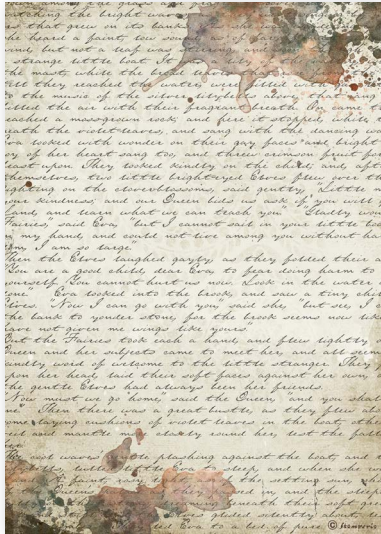 watching the bright wa
that grew on its bank she
he heard a faint, low sou
wind, but not a leaf was stirring, and
strange little boat. It a lily
the mast, while the broad leaves
till they reached the water, were filled
to the music of the silver lily-bells
filled the air with their fragrant breath. On came
reached a moss-grown rock; and here it stopped, while t
neath the violet-leaves, and sang with the dancing wa
Eva looked with wonder on their gay faces and bright
joy of her heart sang too, and threw crimson fruit for
feast upon. They looked kindly on the child, and, aft
themselves, two little bright-eyed Elves flew over th
lighting on the clover-blossoms, said gently, "Little m
your kindness; and our Queen bids us ask if you will
Land, and learn what we can teach you." "Gladly wou
Fairies," said Eva, "but I cannot sail in your little boa
in my hand, and could not live among you without ha
om, I am so large."
Then the Elves laughed gayly, as they folded their a
"You are a good child, dear Eva, to fear doing harm to
yourself. You cannot hurt us now. Look in the water
one." Eva looked into the brook, and saw a tiny chi
Elves. "Now I can go with you," said she, "but see, I c
the bank to yonder stone, for the brook seems now like
have not given me wings like yours."
But the Fairies took each a hand, and flew lightly
Queen and her subjects came to meet her, and all seem
kindly word of welcome to the little stranger. They
pon her head, laid their soft faces against her own,
the gentle Elves had always been her friends.
"Now must we go home," said the Queen, "and you shal
Then there was a great bustle, as they flew ab
some laying cushions of violet leaves in the boat, othe
veil and mantle more closely round her, lest the fall
The cool waves plashing against the boat, and
bells, lulled little Eva to sleep, and when she w
the setting sun, sh
Queen
they in, and the sleep
beneath their soft gre
glided silently about,
led Eva to a bed of pure